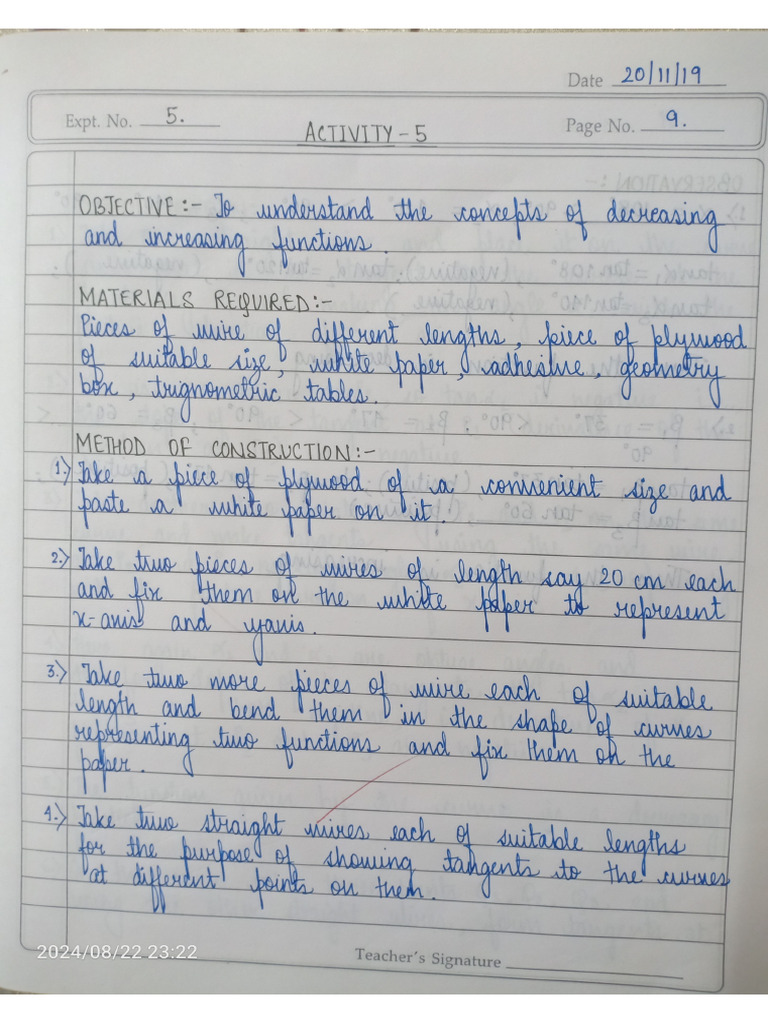 Date 20/11/19
Expt. No. 5.
ACTIVITY-5
Page No. 9.
OBJECTIVE:- To understand the concepts of decreasing
and increasing functions.
MATERIALS REQUIRED:-
Pieces of wire of different lengths, piece of plywood
of suitable size, white paper, adhesive, geometry
box, trignometric tables.
METHOD OF CONSTRUCTION:-
1.) Take a piece of plywood of a convenient size and
paste a white paper on it.
2.) Take two pieces of wires of length say 20 cm each
and fix them on the white paper to represent
x-axis and yaxis.
3.) Take two more pieces of wire each of suitable
length and bend them in the shape of curves
representing two functions and fix them on the
paper.
4.) Take two straight wires each of suitable lengths
for the purpose of showing tangents to the curves
at different points on them.
2024/08/22 23:22
Teacher's Signature